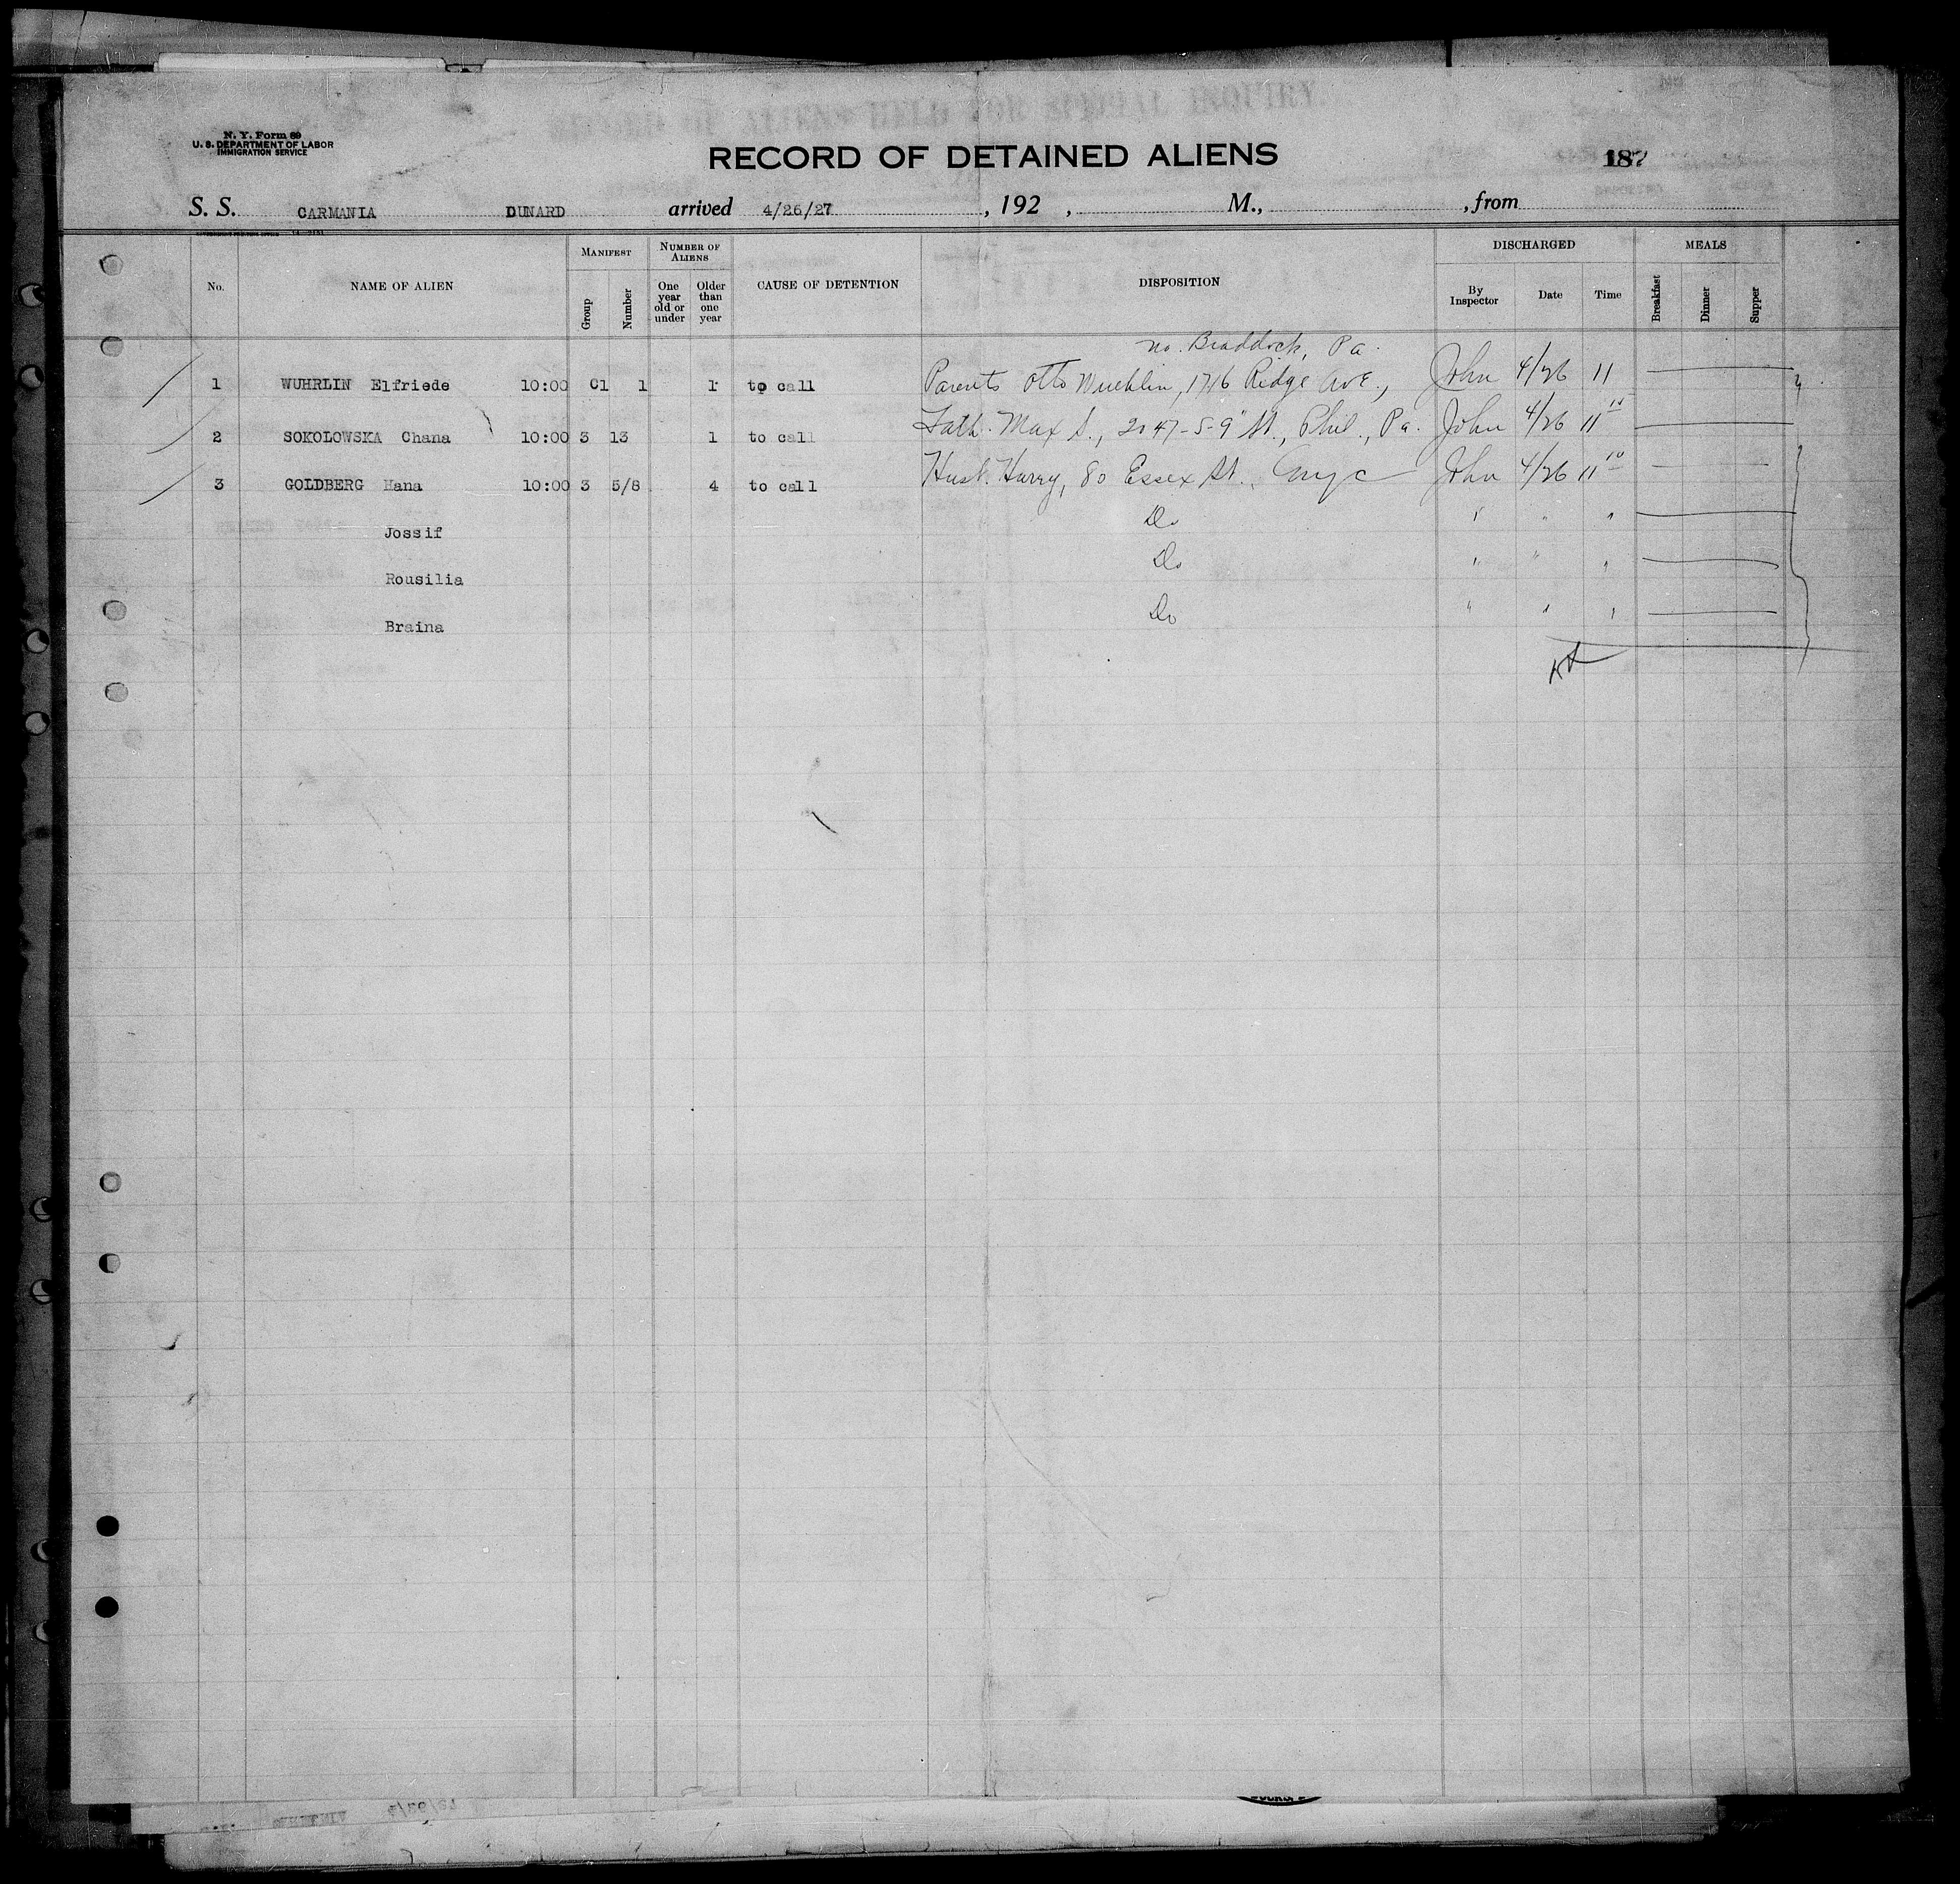 RECORD OF ALIENS HELD FOR SPECIAL INQUIRY.
N. Y. Form 89
U. S. DEPARTMENT OF LABOR
IMMIGRATION SERVICE
RECORD OF DETAINED ALIENS
187
S. S. CARMANIA DUNARD arrived 4/26/27, 192 , M., , from
MANIFEST NUMBER OF ALIENS DISCHARGED MEALS
No. NAME OF ALIEN Group Number One year old or under Older than one year CAUSE OF DETENTION DISPOSITION By Inspector Date Time Breakfast Dinner Supper
no. Braddock, Pa.
1 WUHRLIN Elfriede 10:00 C1 1 1 to call Parents Otto Wuehlin, 1716 Ridge Ave., John 4/26 11
2 SOKOLOWSKA Chana 10:00 3 13 1 to call Fath. Max S., 2047-S-9" St., Phil., Pa. John 4/26 11
3 GOLDBERG Hana 10:00 3 5/8 4 to call Husb. Harry, 80 Essex St., nyc John 4/26 11 10
Jossif Do " " "
Rousilia Do " " "
Braina Do " " "